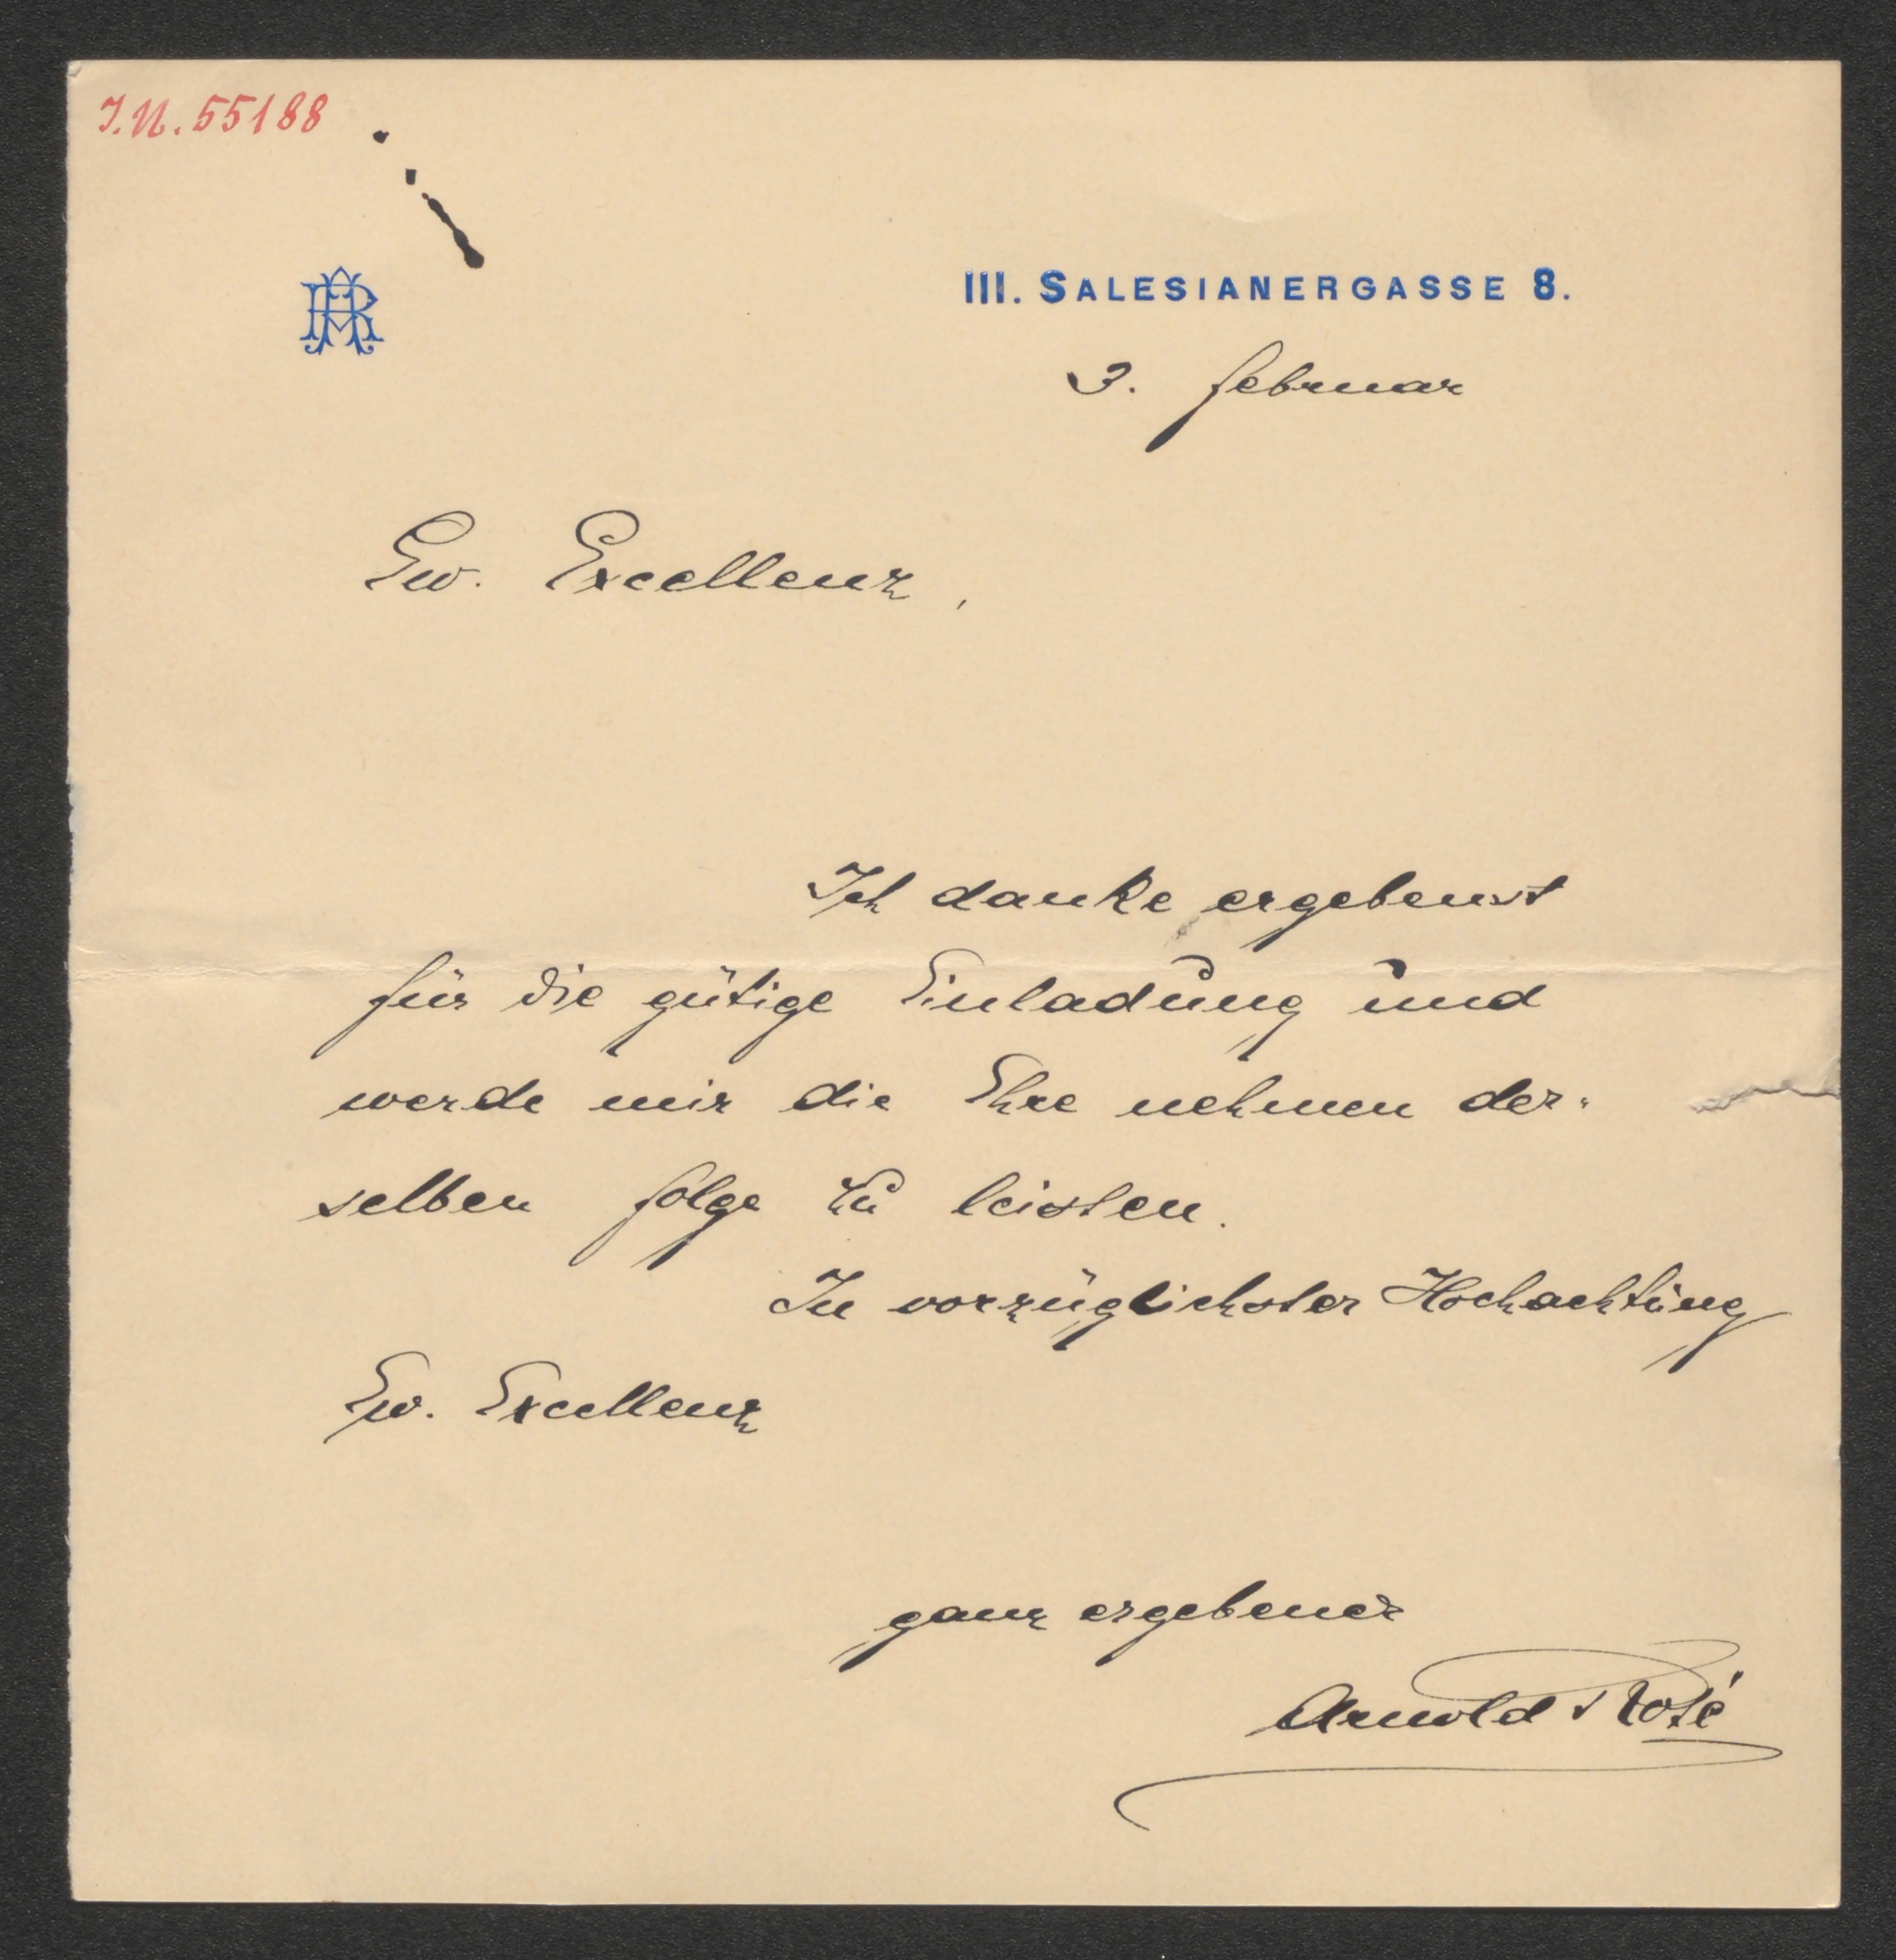 I.N. 55188
III. SALESIANERGASSE 8.
3. februar
Ew. Excellenz,
Ich danke ergebenst
für die gütige Einladung und
werde mir die Ehre nehmen der-
selben folge zu leisten.
In vorzüglichster Hochachtung
Ew. Excellenz
ganz ergebener
Arnold Rosé